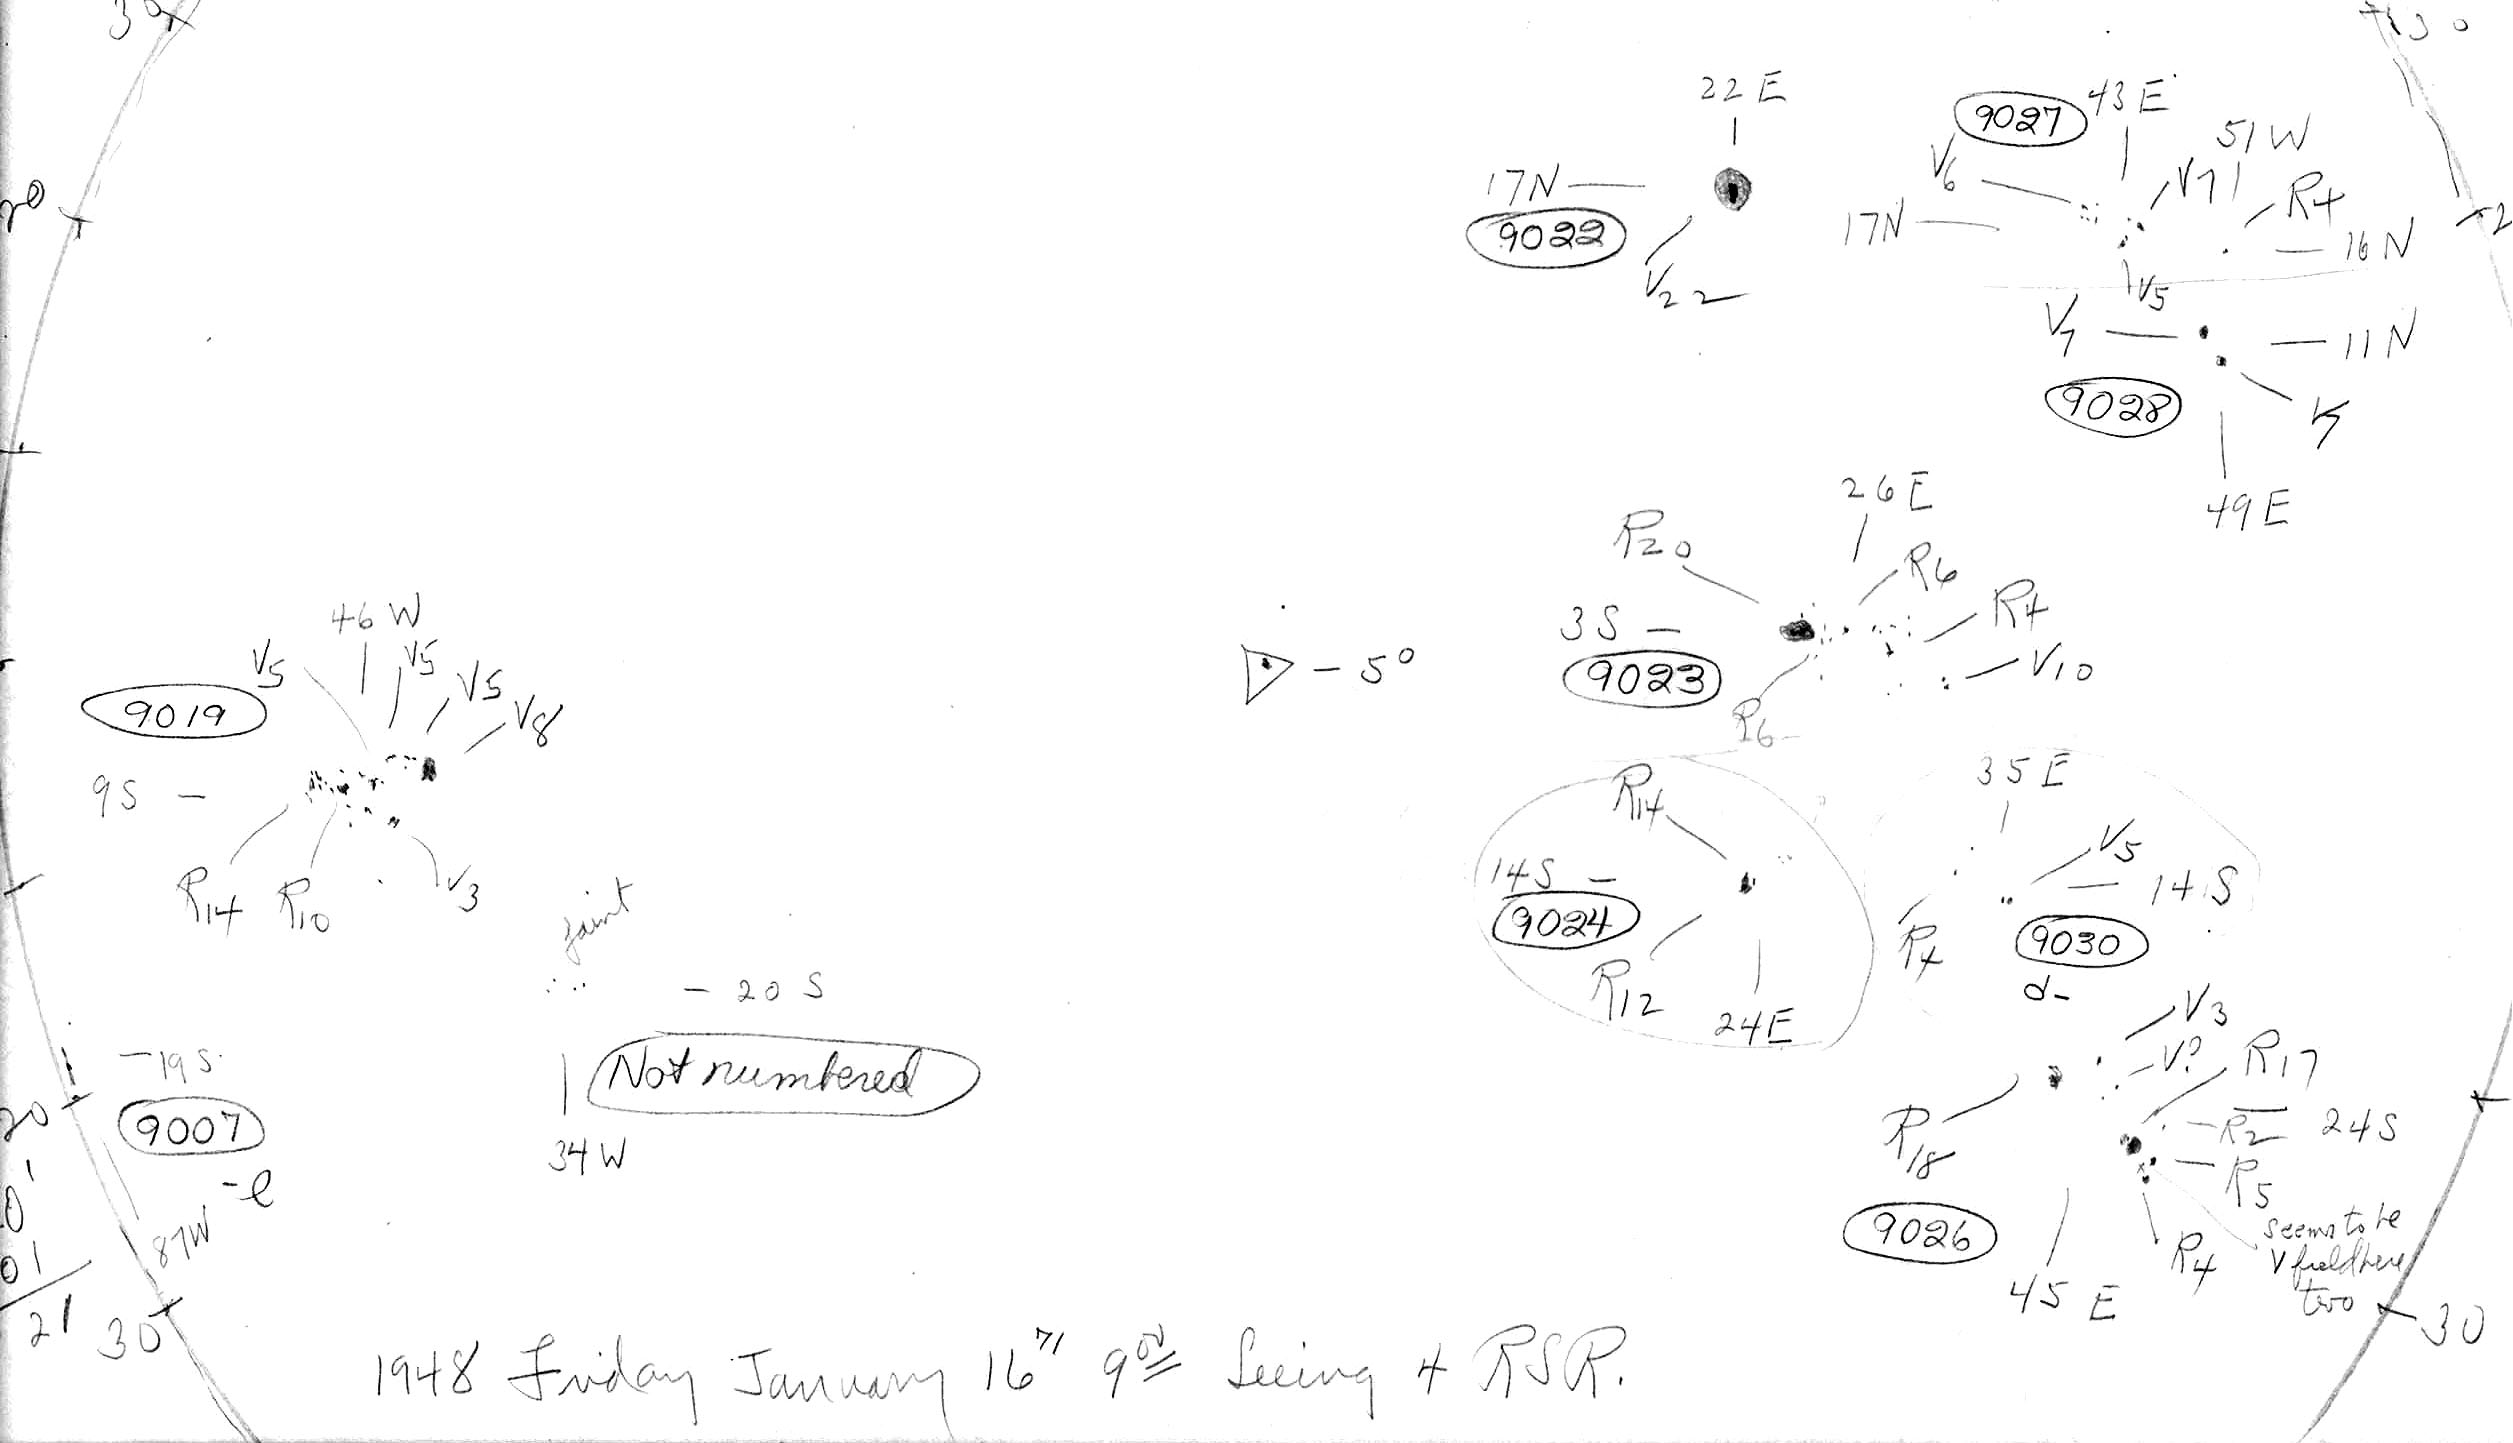 30
30
22 E
9027
43 E
51 W
V6
V7
R4
17N
9022
V22
17N
16 N
V5
20
2
V7
11 N
9028
V7
49 E
26 E
R20
R6
R4
3 S
9023
V10
R6
- 5°
46 W
V5
V5
V5
V8
9019
9 S
R14
R10
V3
R14
14 S
9024
R12
24 E
35 E
V5
14 S
R4
9030
d-
faint
- 20 S
Not numbered
34 W
- 19 S
9007
- l
87W
20
0'
01
21
30
V3
V?
R17
R18
R2
24 S
R5
9026
R4
seems to be
V field here
two
45 E
30
1948 Friday January 16th 9 00 Seeing 4 RSR.